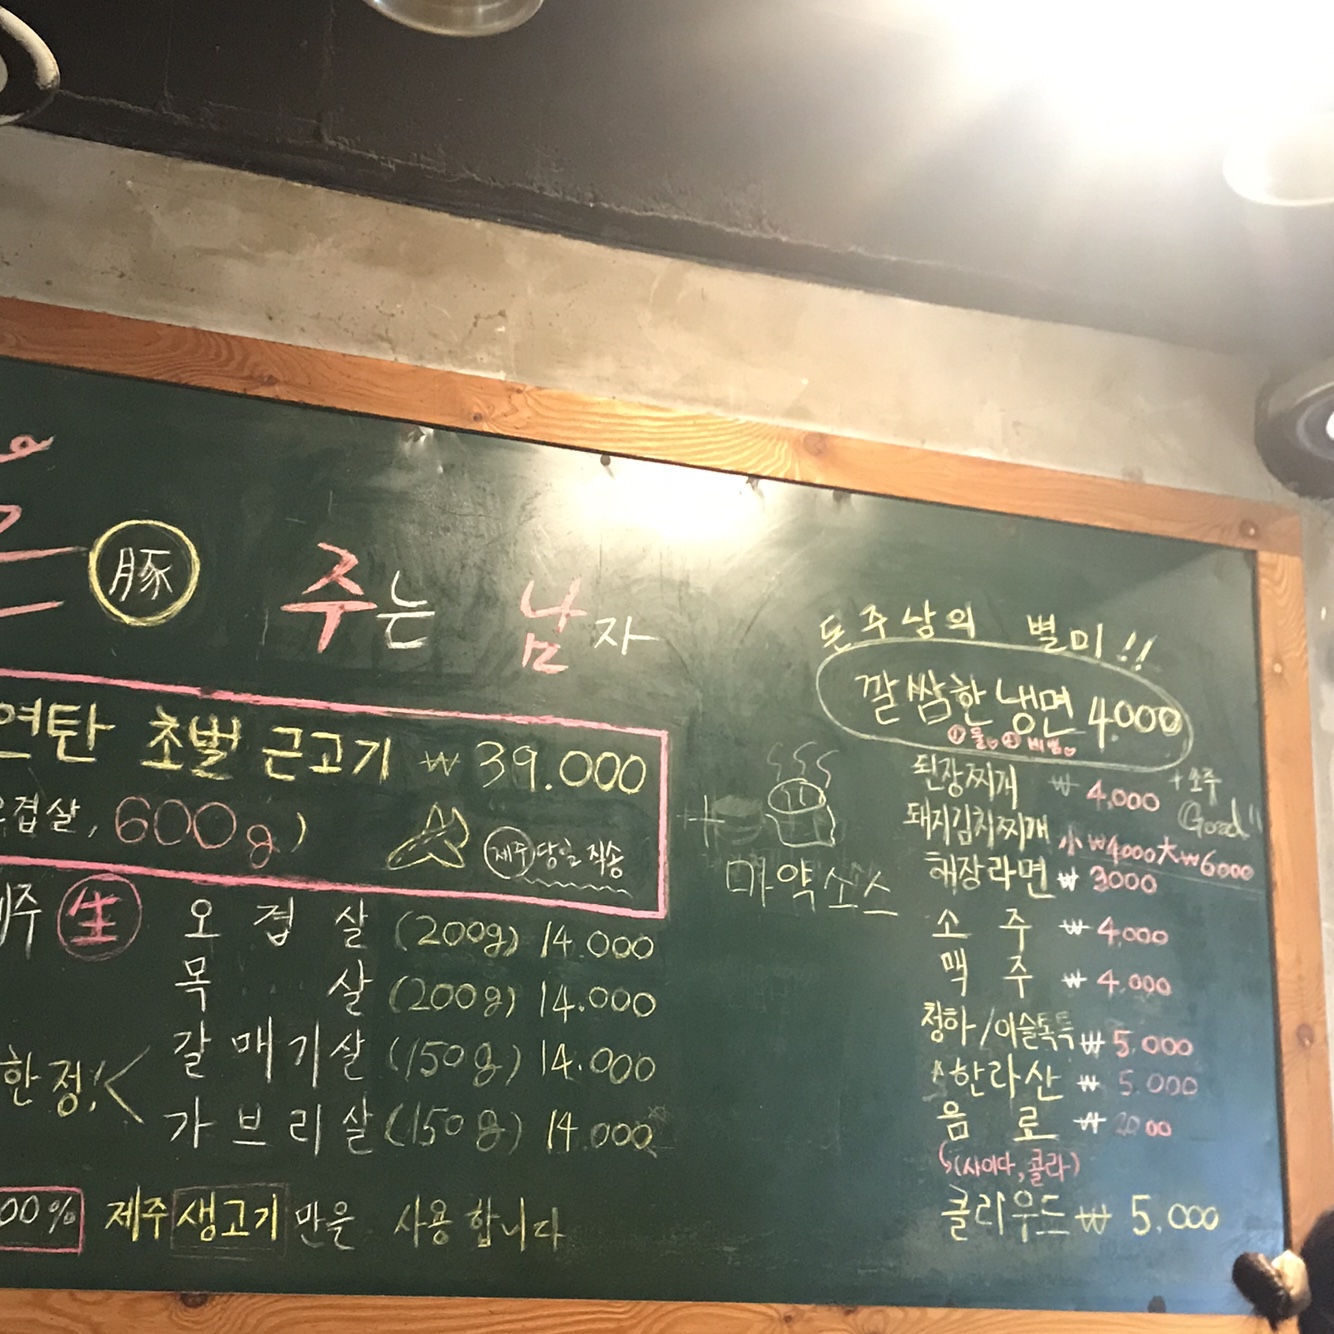 豚 주는 남자
연탄 초벌 근고기 ₩39.000
겹살, 600g)
제주 당일 직송
주 生 오 겹 살 (200g) 14.000
목 살 (200g) 14.000
갈 매 기 살 (150g) 14.000
한정! 가 브 리 살 (150g) 14.000
00% 제주 생고기 만을 사용합니다
마약소스
돈주남의 별미!!
깔쌈한 냉면 4.000
① 물 ② 비빔
된장찌개 ₩4,000 +소주 Good!!
돼지김치찌개 小₩4000 大₩6000
해장라면 ₩3000
소 주 ₩4,000
맥 주 ₩4,000
청하/이슬톡톡 ₩5.000
한라산 ₩5.000
음 료 ₩2000
(사이다, 콜라)
클라우드 ₩5.000